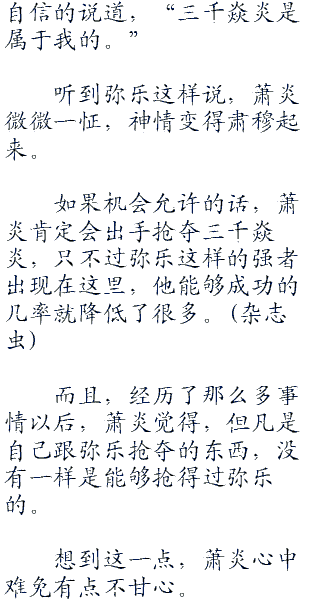 自信的说道，“三千焱炎是
属于我的。”
听到弥乐这样说，萧炎
微微一怔，神情变得肃穆起
来。
如果机会允许的话，萧
炎肯定会出手抢夺三千焱
炎，只不过弥乐这样的强者
出现在这里，他能够成功的
几率就降低了很多。(杂志
虫)
而且，经历了那么多事
情以后，萧炎觉得，但凡是
自己跟弥乐抢夺的东西，没
有一样是能够抢得过弥乐
的。
想到这一点，萧炎心中
难免有点不甘心。